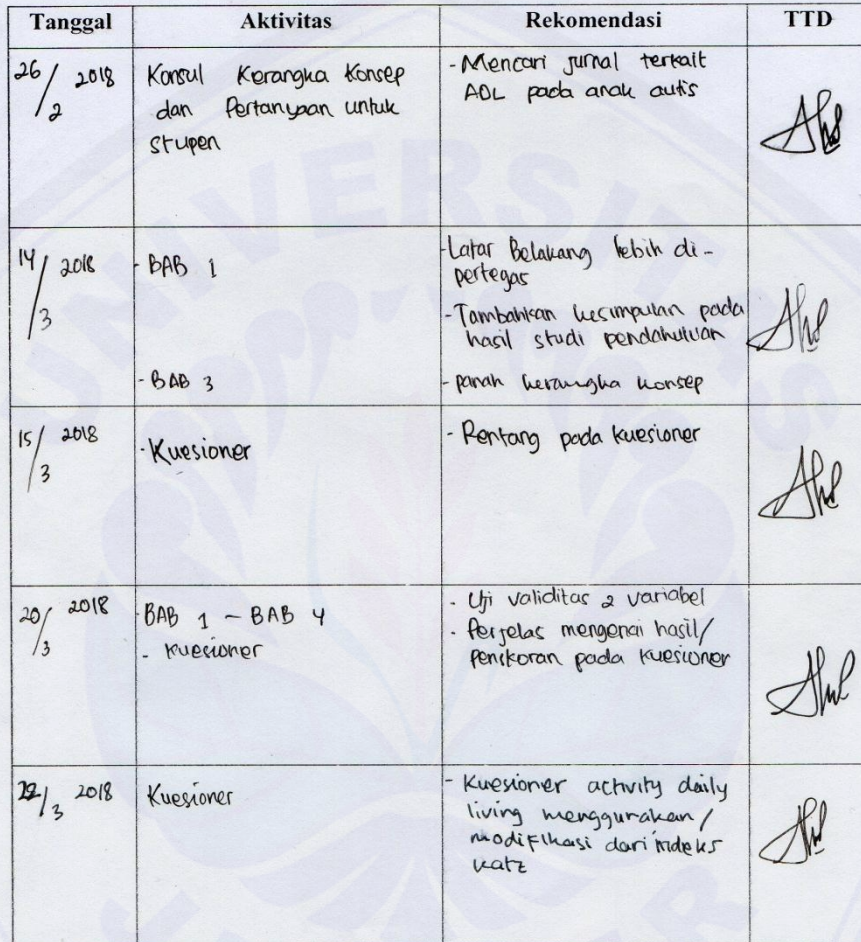 Tanggal Aktivitas Rekomendasi TTD
26/2 2018
Konsul Kerangka Konsep
dan Pertanyaan untuk
stupen
- Mencari jurnal terkait
ADL pada anak autis
14/3 2018
- BAB 1
- Latar Belakang lebih di-
pertegas
- Tambahkan kesimpulan pada
hasil studi pendahuluan
- BAB 3
- panah kerangka konsep
15/3 2018
- Kuesioner
- Rentang pada kuesioner
20/3 2018
- BAB 1 - BAB 4
- kuesioner
- Uji validitas 2 variabel
- Perjelas mengenai hasil/
penskoran pada kuesioner
22/3 2018
Kuesioner
- Kuesioner activity daily
living menggunakan/
modifikasi dari indeks
katz
UNIVERSITAS